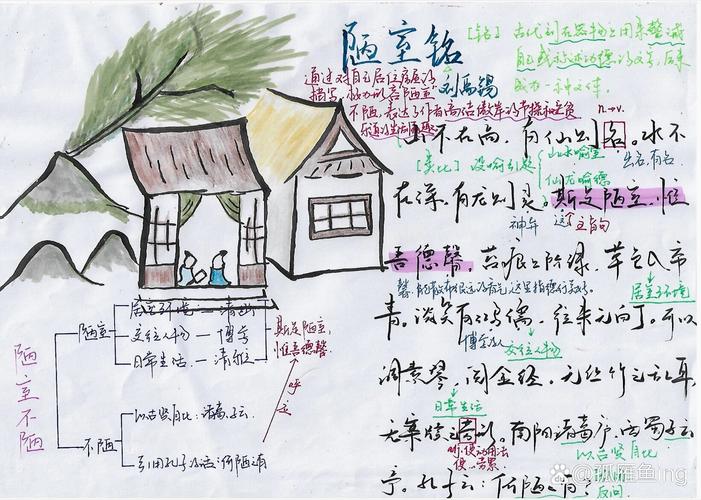 陋室铭
刘禹锡
[铭] 古代刻在器物上用来警诫
自己或称述功德的文字，后来
成为一种文体。
通过对自己居住房屋的
描写，极力以
不陋，表达了作者高洁傲岸的节操和安贫
乐道的生活情趣
n.→v.
山不在高，有仙则名。水不
[类比] 设喻引起
山水喻室
仙龙喻德
出名，有名
在深，有龙则灵。斯是陋室，惟
神异
这
主旨句
吾德馨。苔痕上阶绿，草色入帘
馨：能散布很远的香气，这里指德行美好。
居室环境
青。谈笑有鸿儒，往来无白丁。可以
博学的人
交往人物
调素琴，阅金经。无丝竹之乱耳，
日常生活
无案牍之劳形。南阳诸葛庐，西蜀子云
听：使动用法
使…劳累
以古贤自比
亭。孔子云：何陋之有？
反问
陋室不陋
陋室
居室环境 — 清幽
交往人物 — 博学
日常生活 — 清雅
斯是陋室，
惟吾德馨
呼应
不陋
以古贤自比：诸葛、子云
引用孔子的话：何陋之有
@孤雁鱼ing